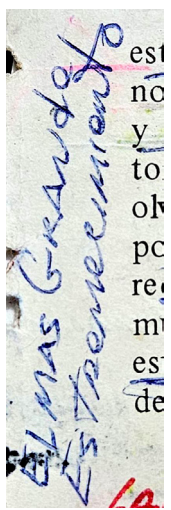 EL MAS GRANDE
ESTREMECIMIENTO
est
no
y
to
olv
po
re
mu
est
de